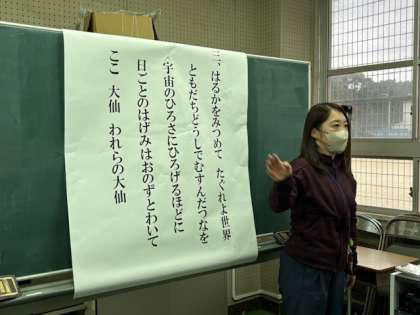 三、はるかをみつめて　たぐれよ世界
ともだちどうしでむすんだつなを
宇宙のひろさにひろげるほどに
日ごとのはげみはおのずとわいて
ここ　大仙　われらの大仙